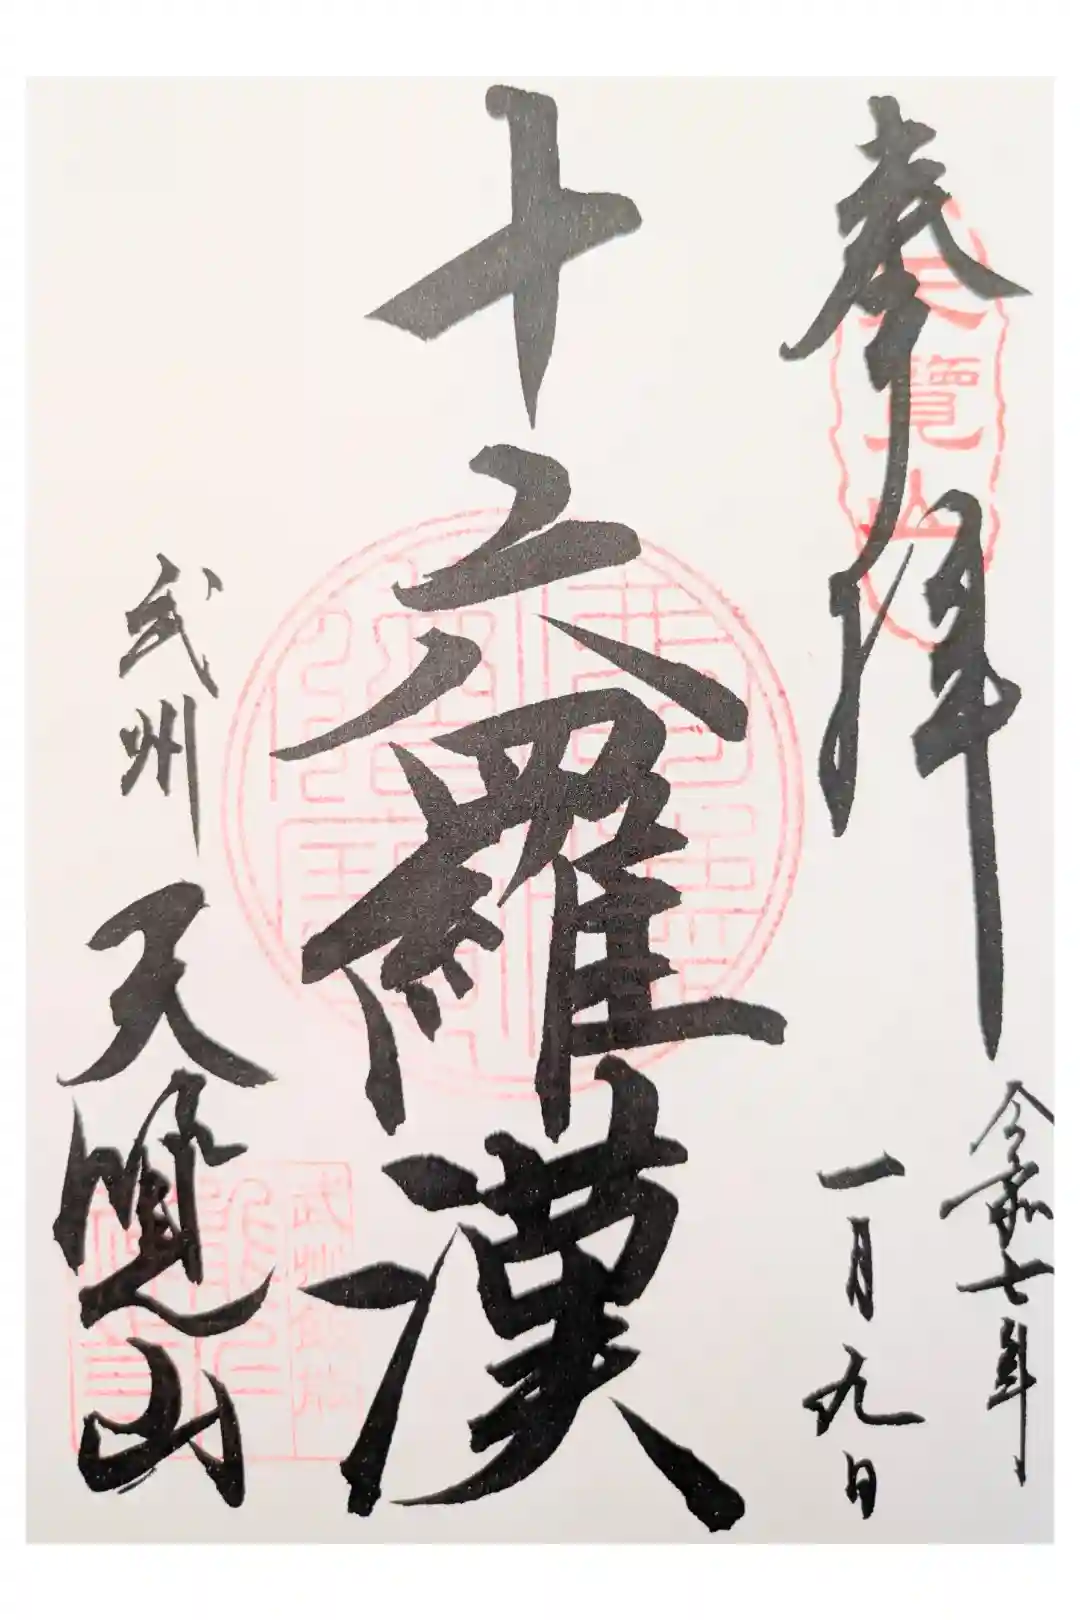 奉拝
天覽山
令和七年
一月九日
十六羅漢
武州 天覧山